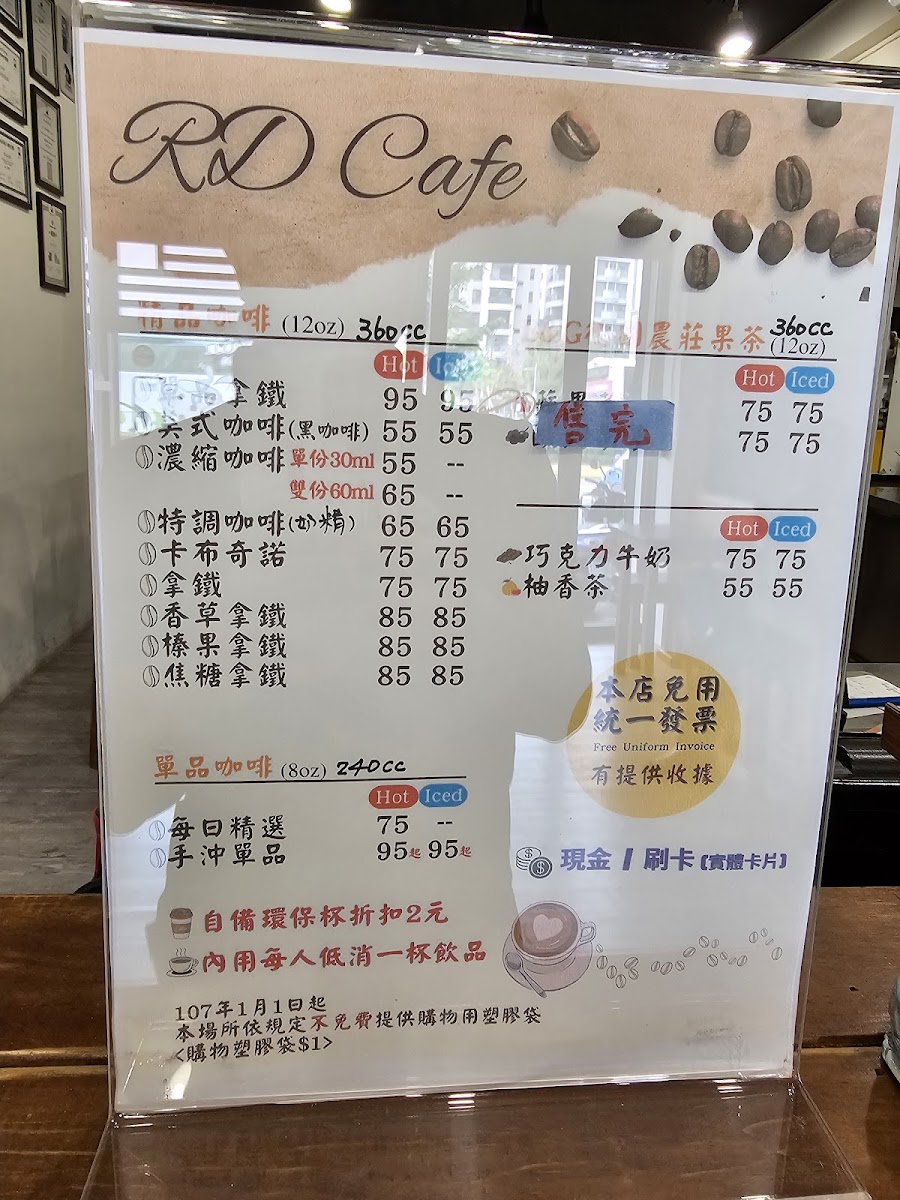 RD Cafe
精品咖啡 (12oz) 360cc
Hot Iced
拿鐵 95 95
美式咖啡(黑咖啡) 55 55
濃縮咖啡 單份30ml 55 --
雙份60ml 65 --
特調咖啡(奶精) 65 65
卡布奇諾 75 75
拿鐵 75 75
香草拿鐵 85 85
榛果拿鐵 85 85
焦糖拿鐵 85 85
單品咖啡 (8oz) 240cc
Hot Iced
每日精選 75 --
手沖單品 95起 95起
自備環保杯折扣2元
內用每人低消一杯飲品
107年1月1日起
本場所依規定不免費提供購物用塑膠袋
<購物塑膠袋$1>
農莊果茶 360cc
(12oz)
Hot Iced
75 75
售完
75 75
Hot Iced
巧克力牛奶 75 75
柚香茶 55 55
本店免用
統一發票
Free Uniform Invoice
有提供收據
現金 / 刷卡 (實體卡片)